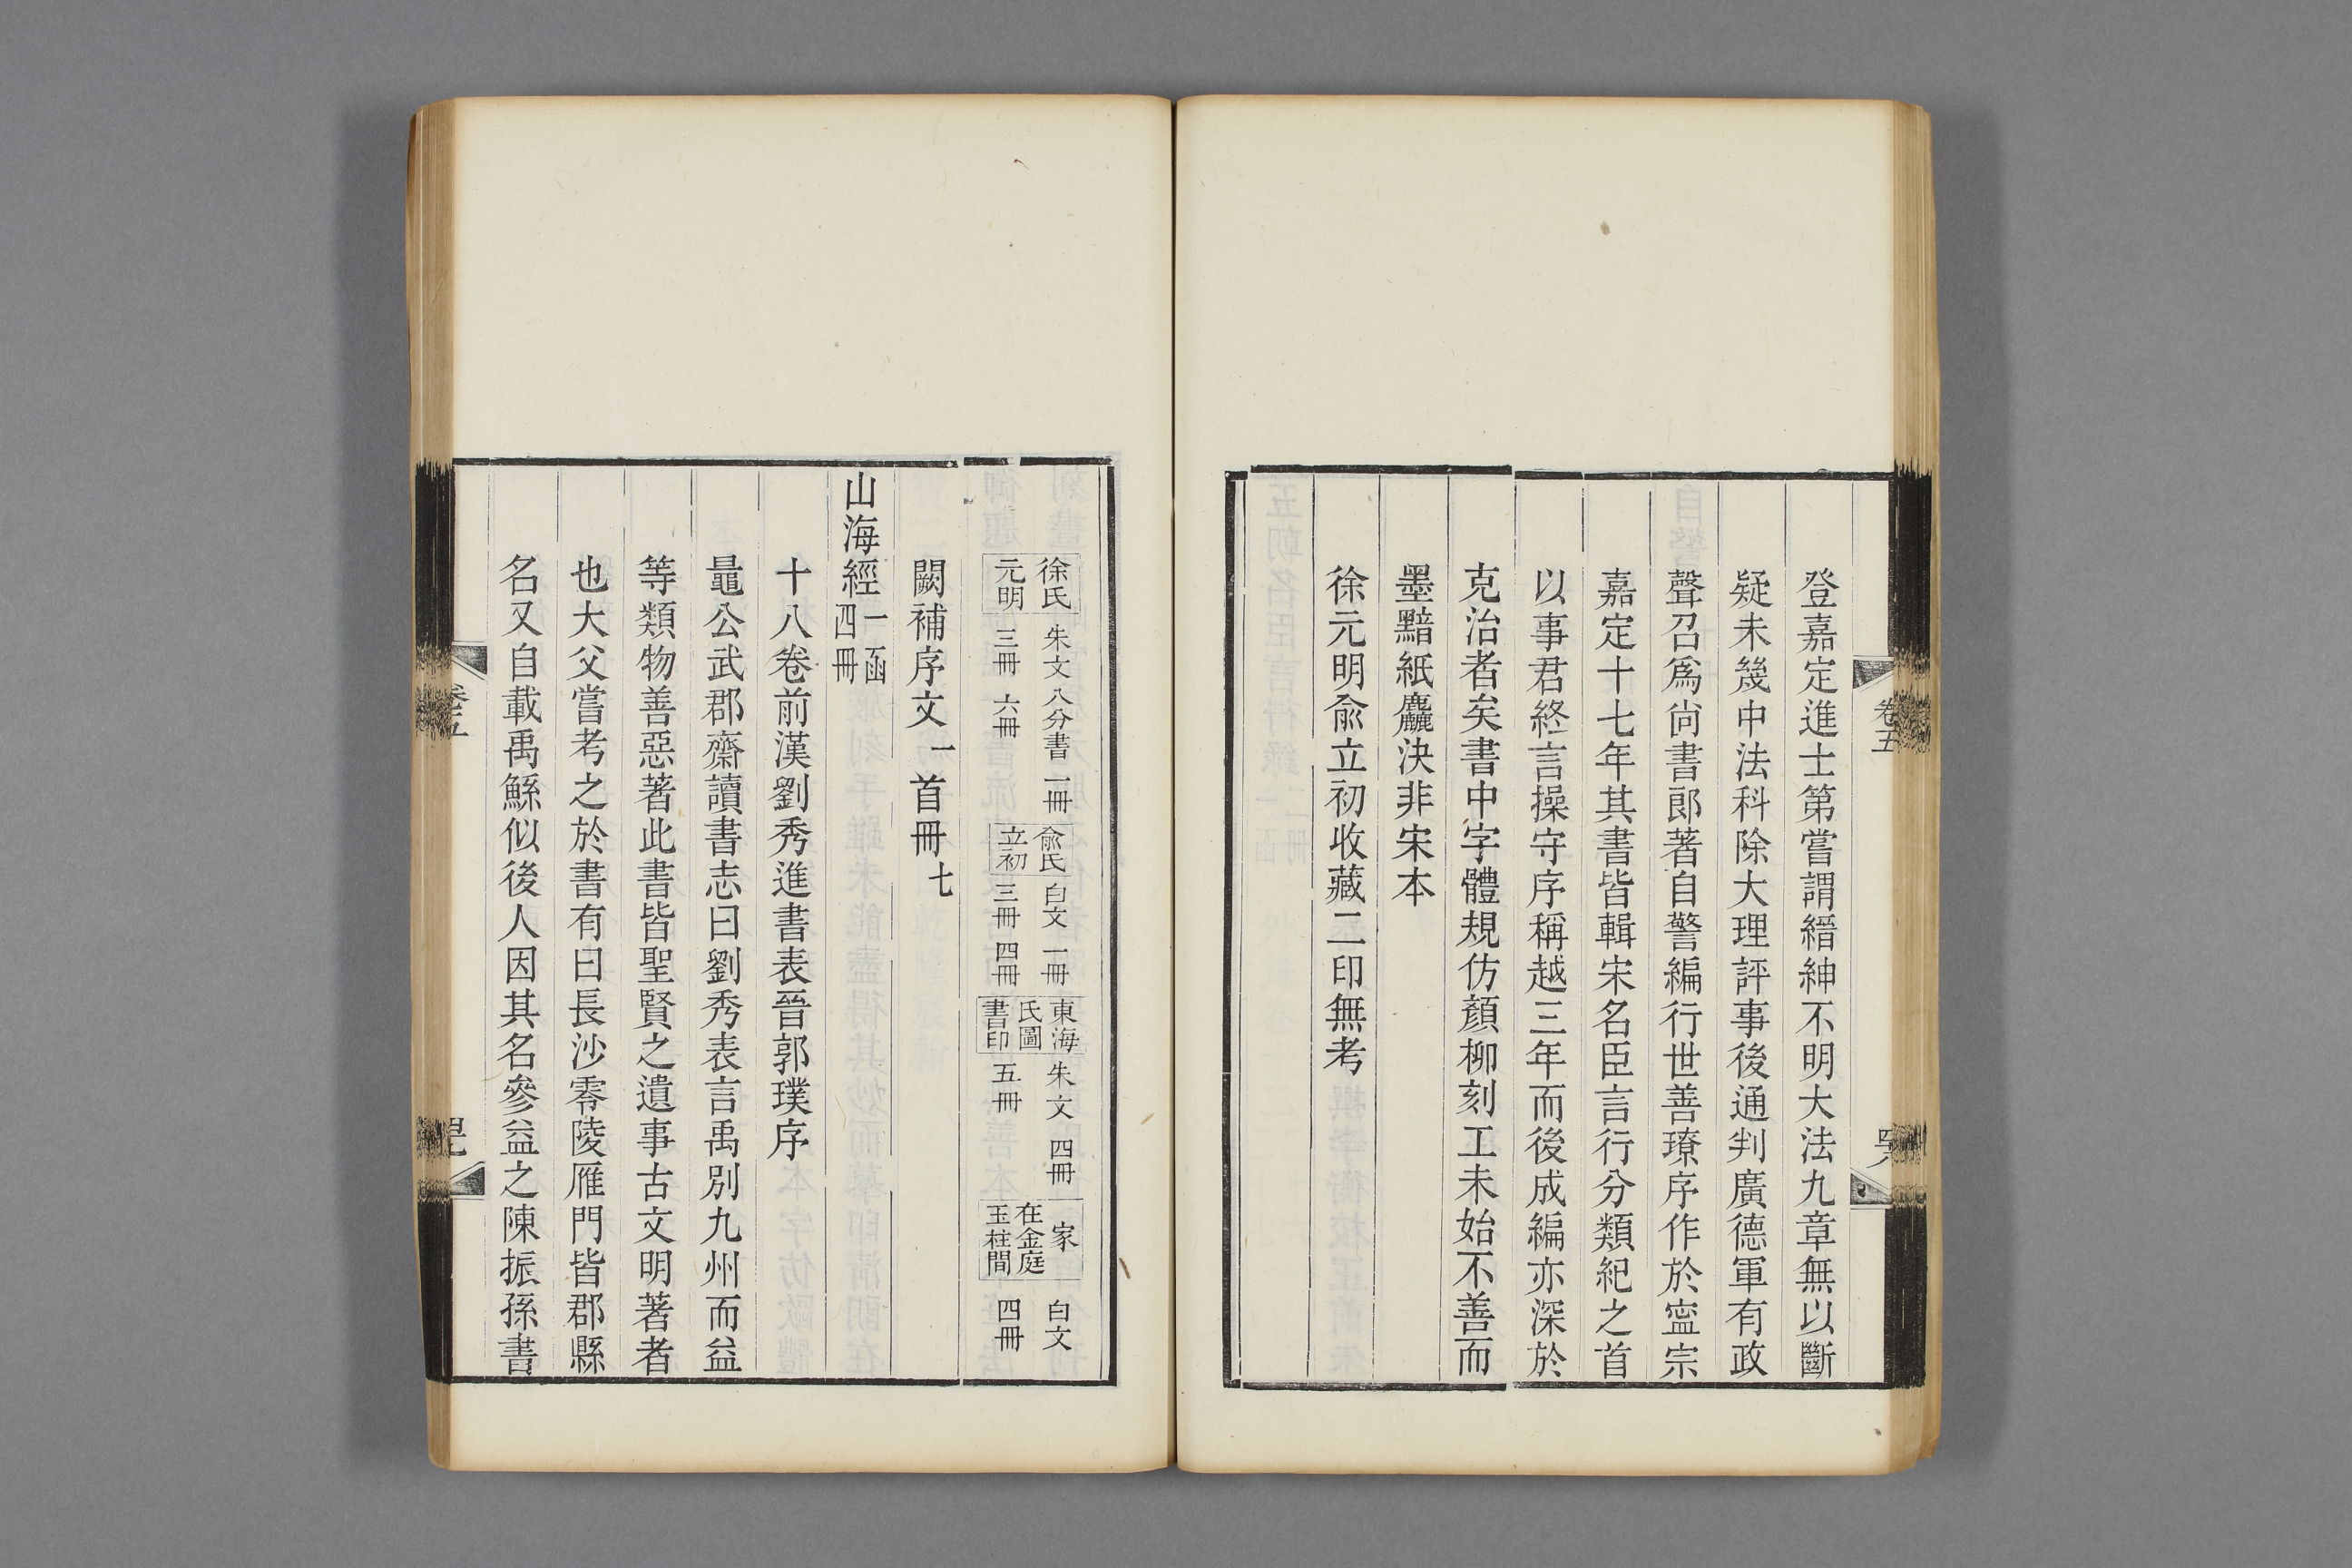 卷五
登嘉定進士第嘗謂縉紳不明大法九章無以斷
疑未幾中法科除大理評事後通判廣德軍有政
聲召爲尚書郎著自警編行世善璙序作於寍宗
嘉定十七年其書皆輯宋名臣言行分類紀之首
以事君終言操守序稱越三年而後成編亦深於
克治者矣書中字體規仿顏柳刻工未始不善而
墨黯紙麤決非宋本
徐元明兪立初收藏二印無考
徐氏元明
朱文八分書 一冊
三冊 六冊
兪氏立初
白文 一冊
三冊 四冊
東海氏圖書印
朱文 四冊
五冊
家在金庭玉柱間
白文
四冊
闕補序文一首冊七
山海經一函四冊
十八卷前漢劉秀進書表晉郭璞序
鼂公武郡齋讀書志曰劉秀表言禹別九州而益
等類物善惡著此書皆聖賢之遺事古文明著者
也大父嘗考之於書有曰長沙零陵雁門皆郡縣
名又自載禹鯀似後人因其名參益之陳振孫書
卷五